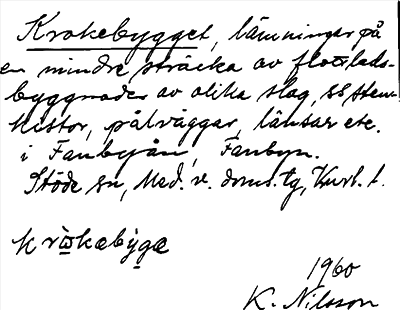 Krokebygget, lämningar på
en mindre sträcka av flottleds-
byggnader av olika slag, ss sten-
kistor, pålväggar, länsar etc.
i Fanbyån, Fanbyn.
Stöde sn, Med. v. doms.
1960
K. Nilsson